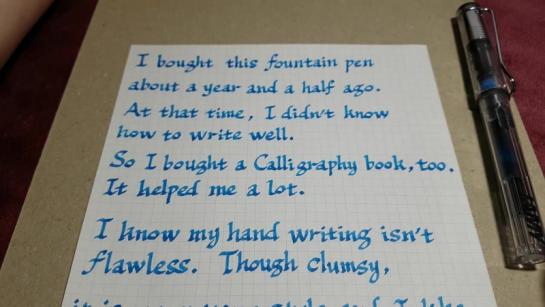 I bought this fountain pen
about a year and a half ago.
At that time, I didn't know
how to write well.
So I bought a Calligraphy book, too.
It helped me a lot.
I know my hand writing isn't
flawless. Though clumsy,
it is my own style and I like